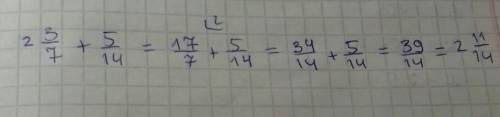 2 3/7 + 5/14 = 17/7 ⌞2 + 5/14 = 34/14 + 5/14 = 39/14 = 2 11/14